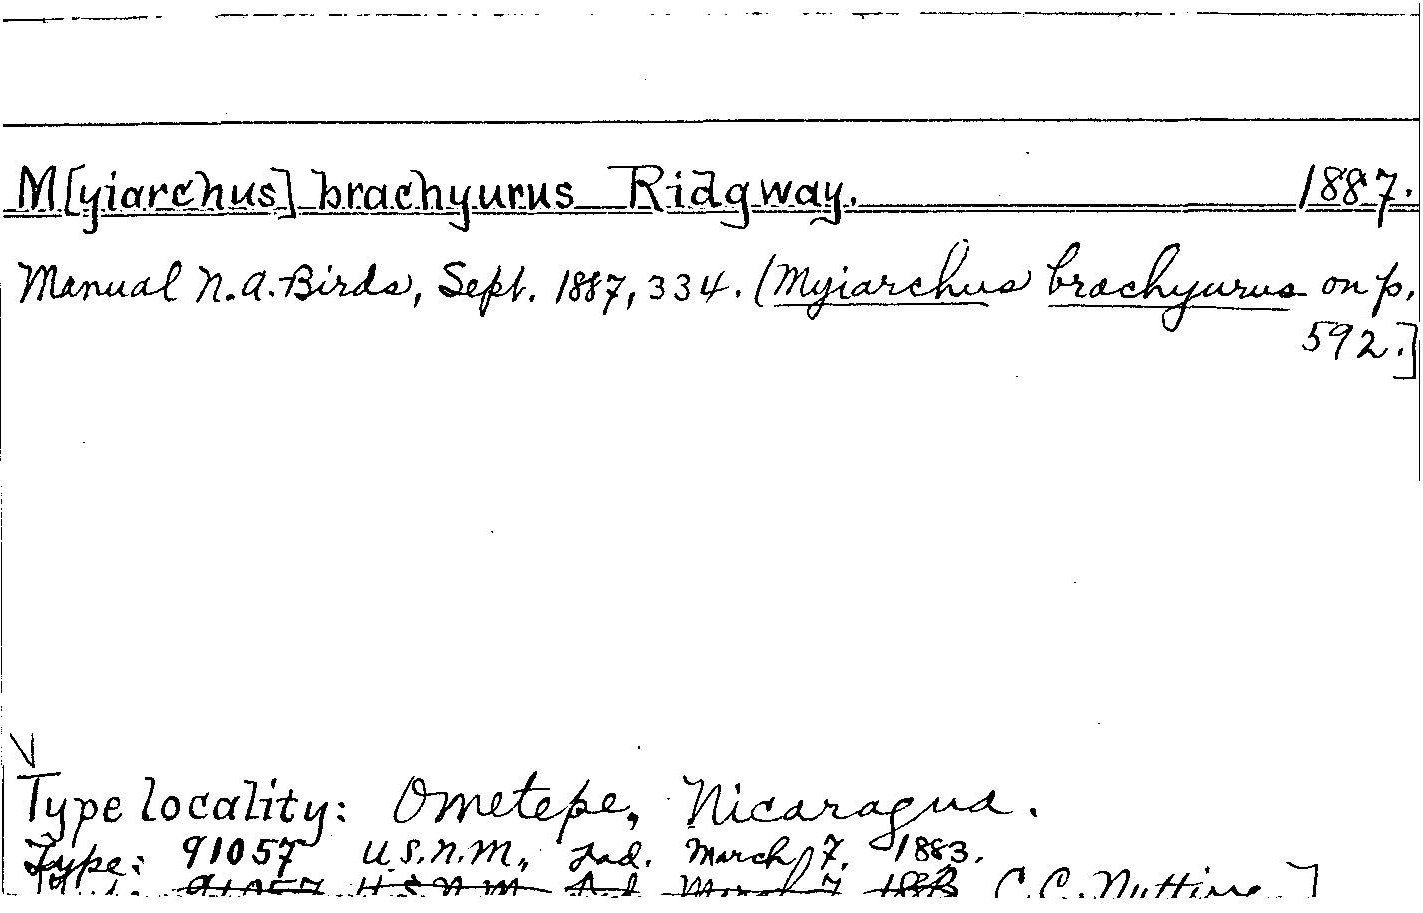 M[yiarchus] brachyurus Ridgway. 1887.
Manual N.A. Birds, Sept. 1887, 334. (Myiarchus brachyurus on p.
592.]
Type locality: Ometepe, Nicaragua.
Type: 91057 U.S.N.M., Ad. March 7, 1883.
91057 U.S.N.M. Ad. March 7 1883 C.C. Nutting ]